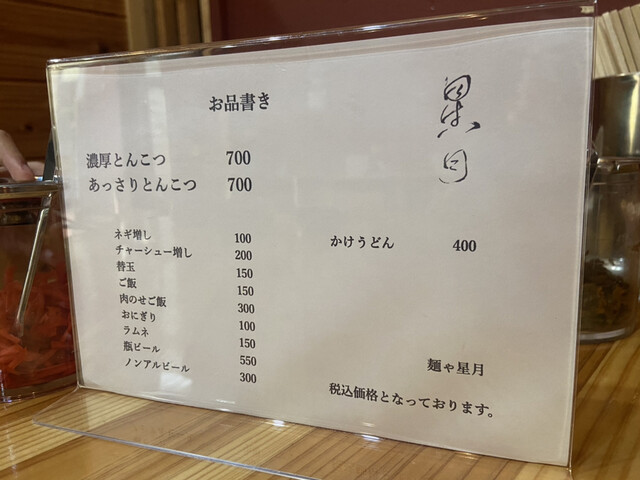 お品書き
濃厚とんこつ 700
あっさりとんこつ 700
ネギ増し 100
チャーシュー増し 200
替玉 150
ご飯 150
肉のせご飯 300
おにぎり 100
ラムネ 150
瓶ビール 550
ノンアルビール 300
かけうどん 400
麺や星月
税込価格となっております。